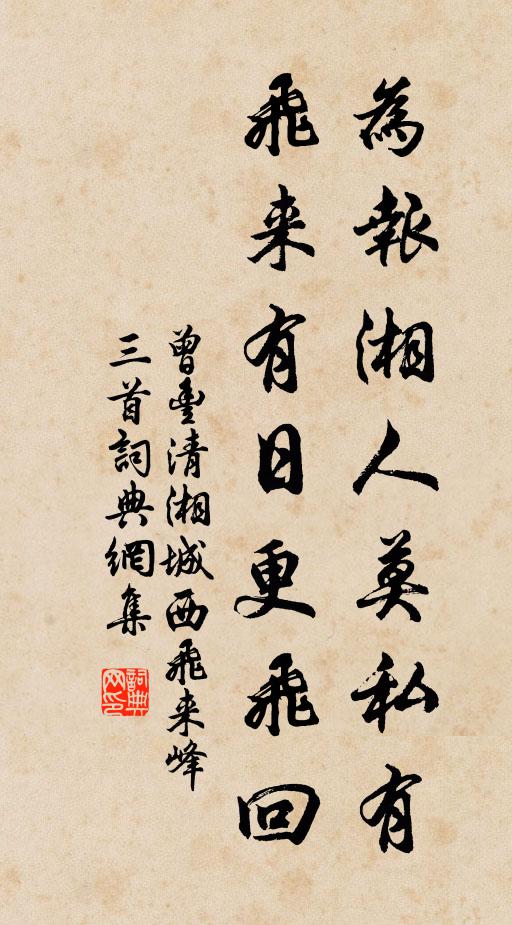 為報湘人莫私有
飛来有日更飛回
曾豐清湘城西飛来峰
三首詞典網集
詞典
网印